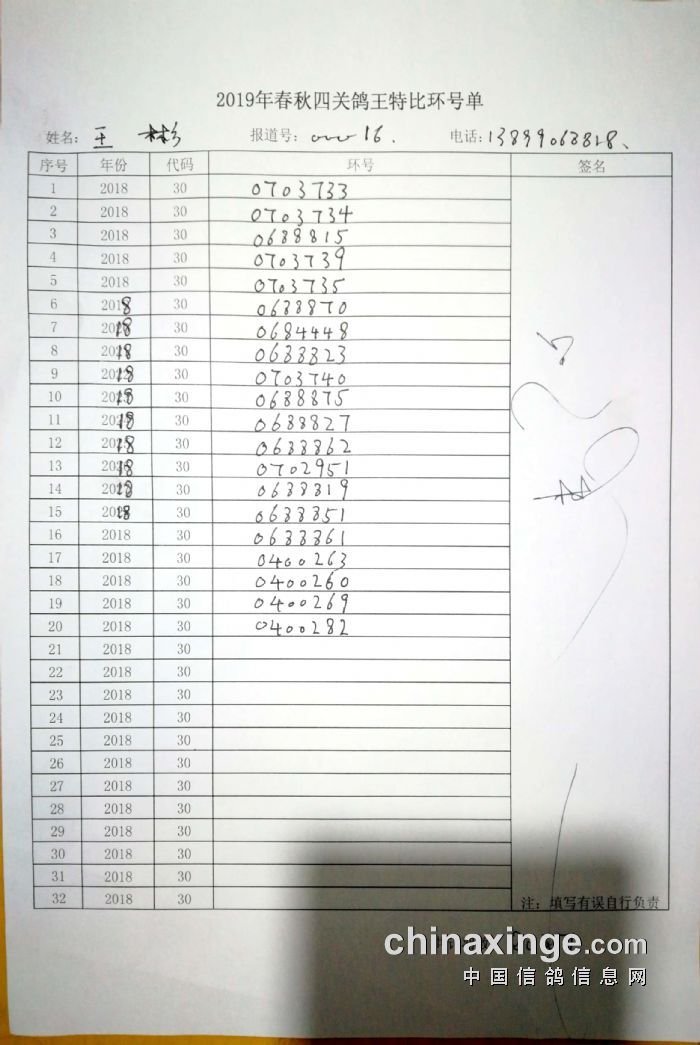 2019年春秋四关鸽王特比环号单
姓名: 王 彬 报道号: 00016. 电话: 13899068828、
序号 年份 代码 环号 签名
1 2018 30 0703733
2 2018 30 0703734
3 2018 30 0688815
4 2018 30 0703739
5 2018 30 0703735
6 2018 30 0688870
7 2018 30 0684448
8 2018 30 0688823
9 2018 30 0703740
10 2018 30 0688875
11 2018 30 0688827
12 2018 30 0688862
13 2018 30 0702951
14 2018 30 0688819
15 2018 30 0688851
16 2018 30 0688861
17 2018 30 0400263
18 2018 30 0400260
19 2018 30 0400269
20 2018 30 0400282
21 2018 30
22 2018 30
23 2018 30
24 2018 30
25 2018 30
26 2018 30
27 2018 30
28 2018 30
29 2018 30
30 2018 30
31 2018 30
32 2018 30
注: 填写有误自行负责
chinaxinge.com
中国信鸽信息网